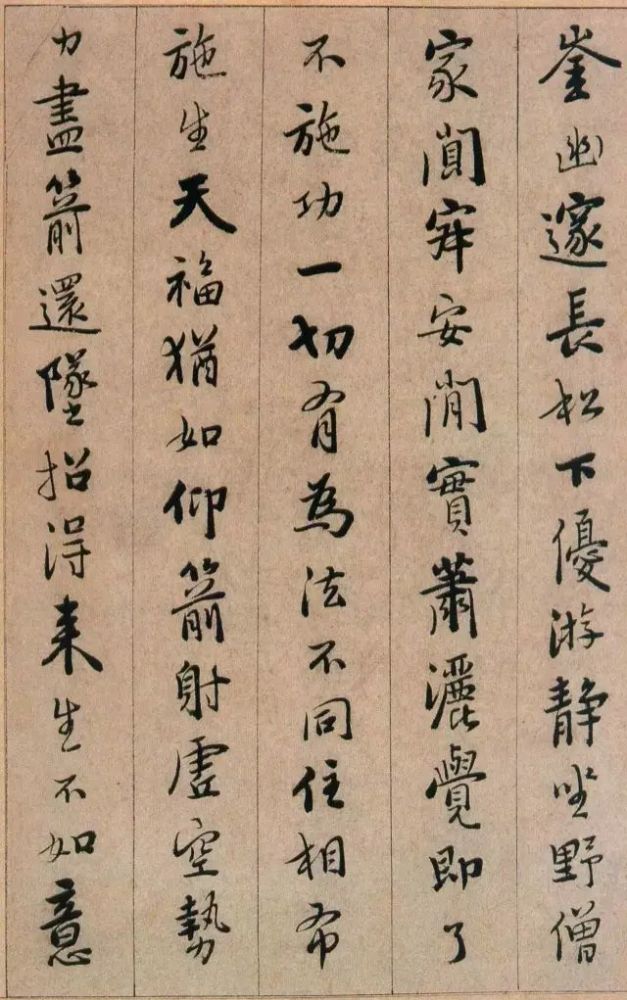 崟幽邃長松下優游静坐野僧
家闃寂安閑實蕭灑覺即了
不施功一切有為法不同住相布
施生天福猶如仰箭射虚空勢
力盡箭還墜招得来生不如意